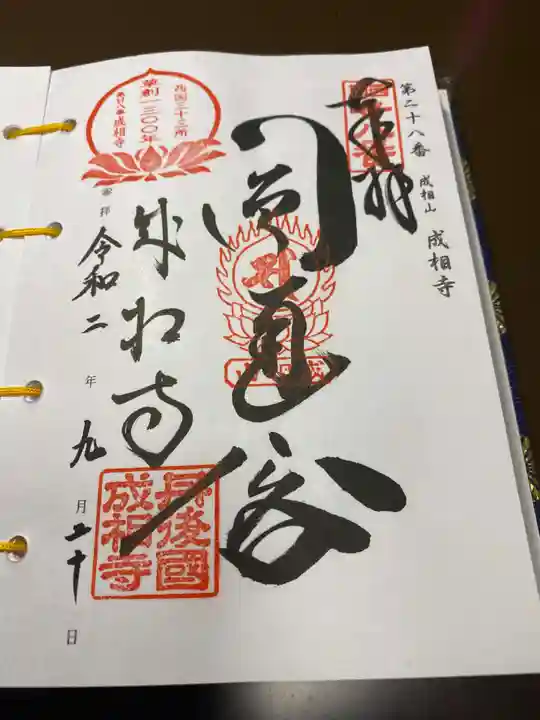 第二十八番 成相山 成相寺
奉拝
圓通殿
成相寺
西国三十三所
草創一三〇〇年
成相寺
参拝 令和二年九月二十日
丹後國
成相寺